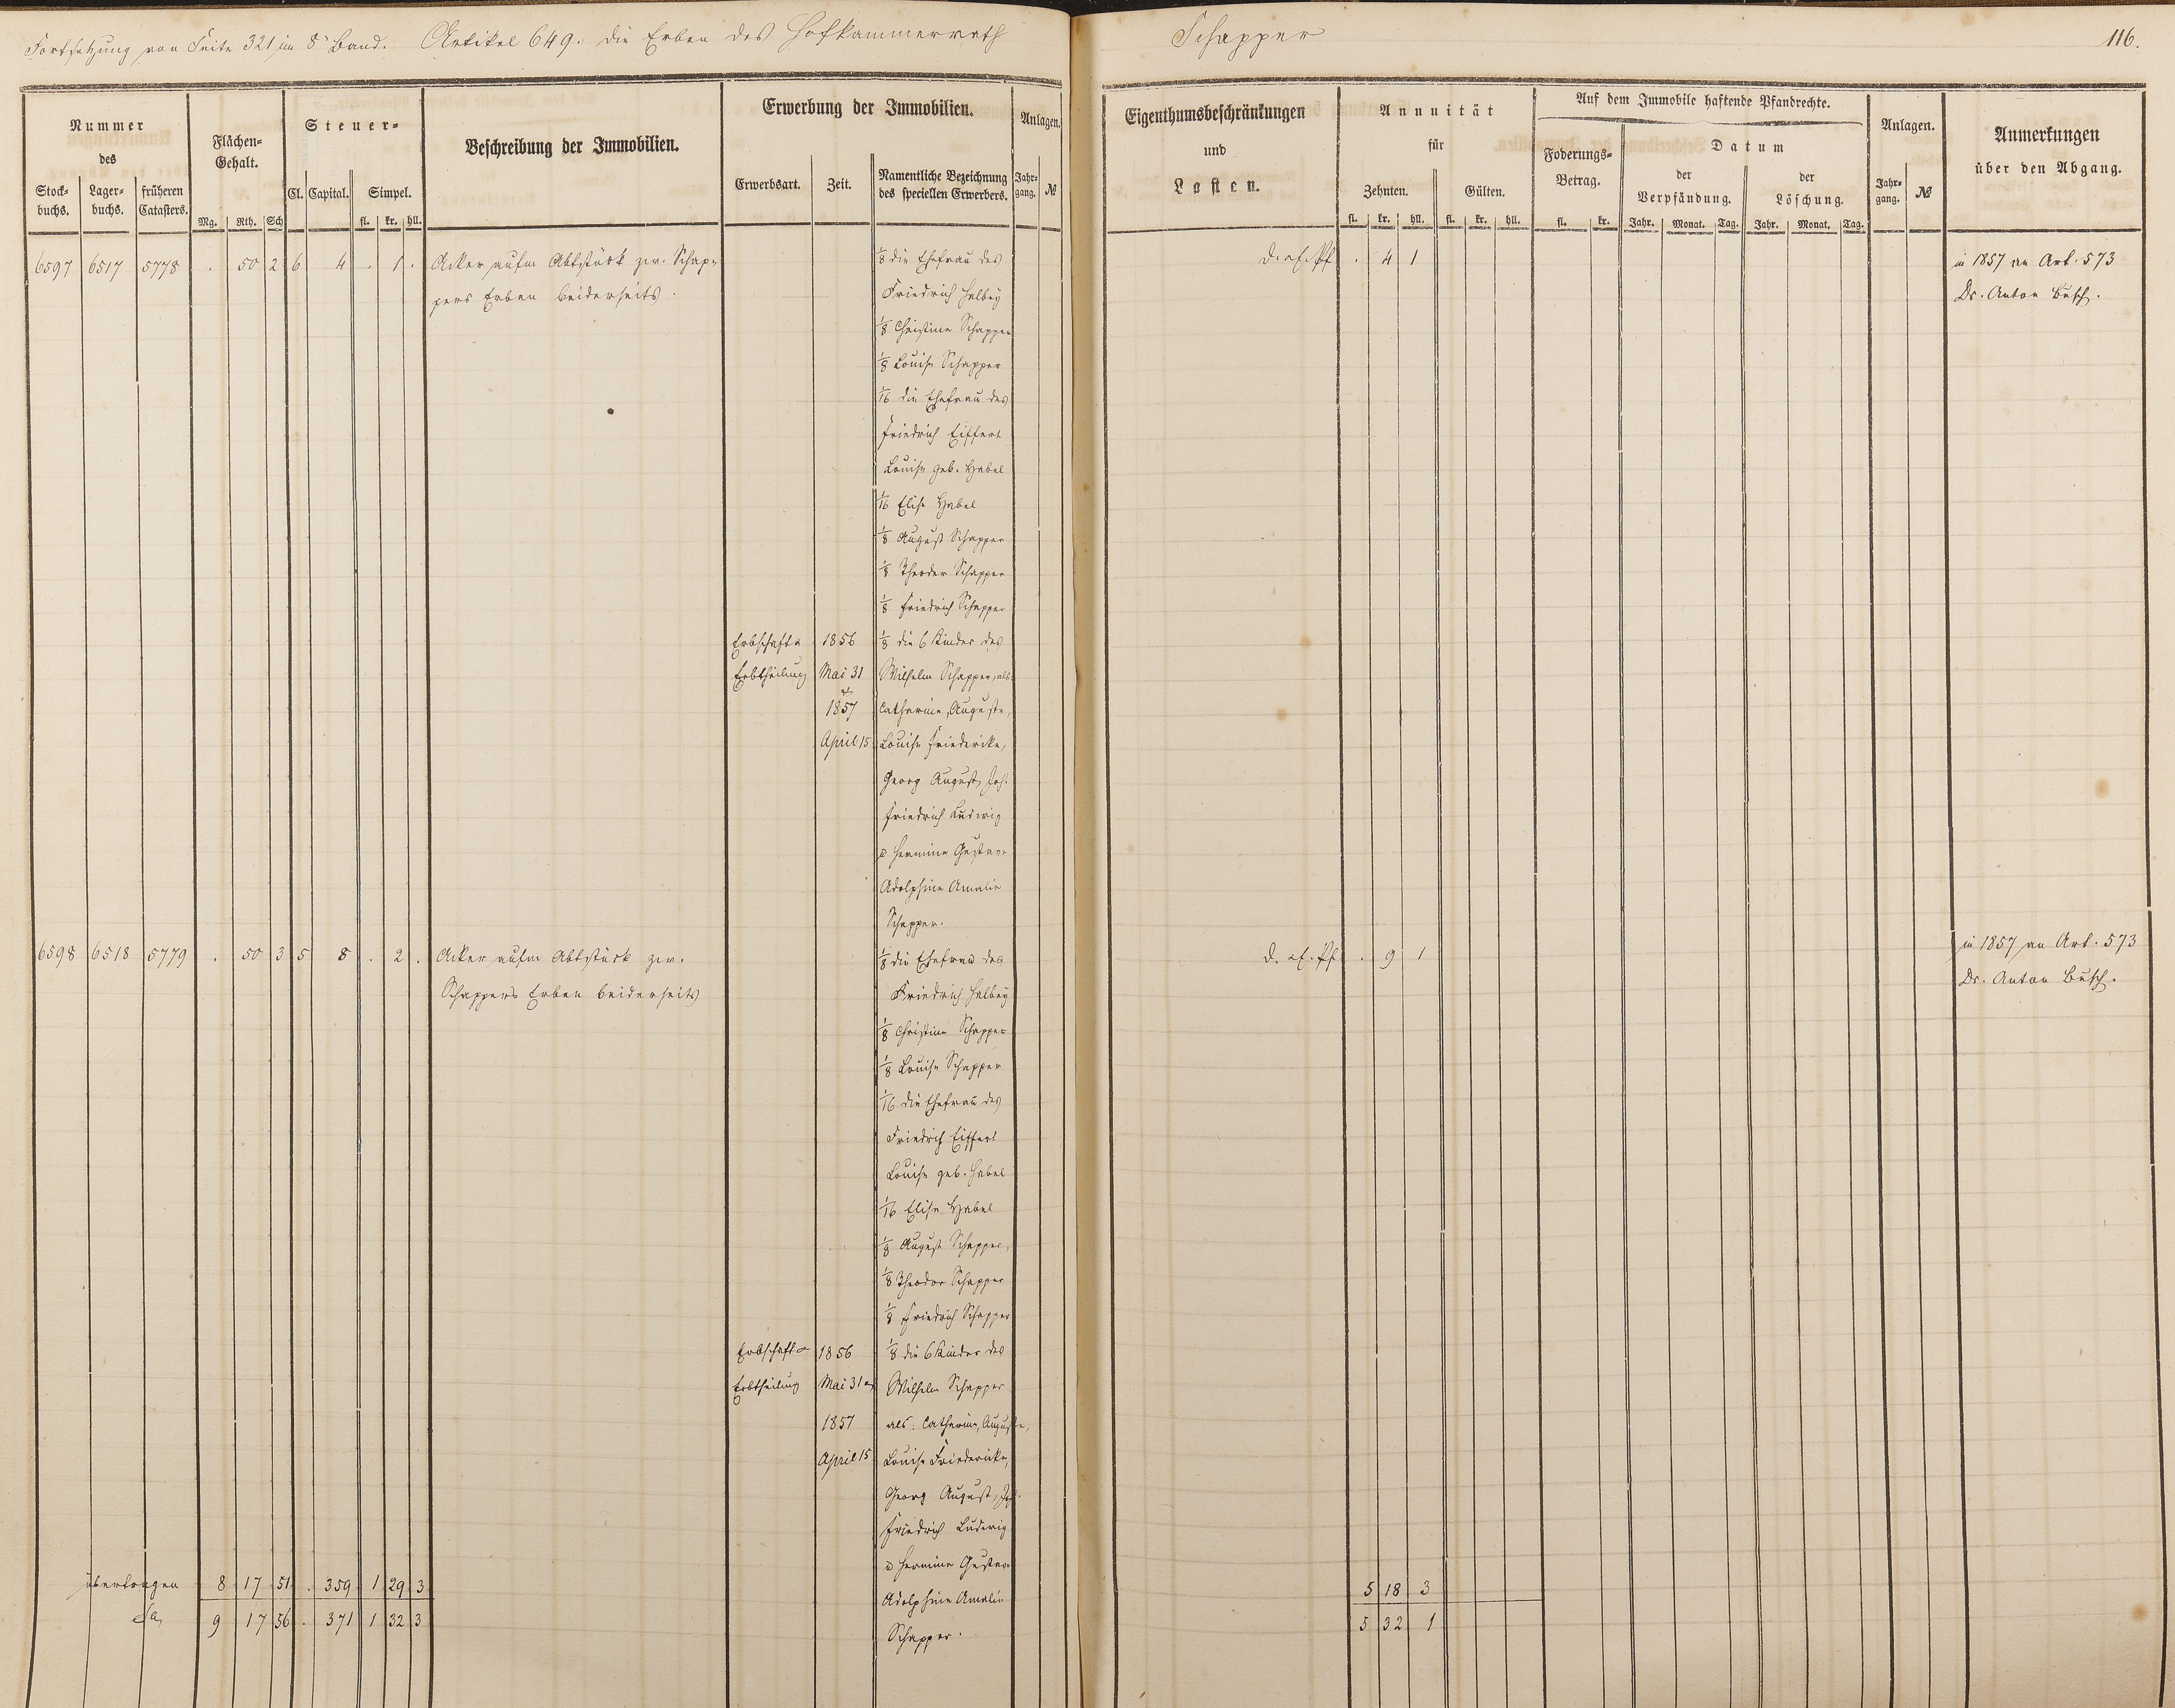 Fortsetzung von Seite 321 im 8n Band. Artikel 649. die Erben des Hofkammerrath Schapper 116.
Nummer des
Stock-buchs. Lager-buchs. früheren Catasters.
Flächen-Gehalt.
Mg. Rth. Sch
Steuer-
Cl. Capital. Simpel.
fl. kr. hll.
Beschreibung der Immobilien.
Erwerbung der Immobilien.
Erwerbsart. Zeit. Namentliche Bezeichnung des speciellen Erwerbers.
Anlagen.
Jahr-gang. №
Eigenthumsbeschränkungen
und
Lasten.
Annuität
für
Zehnten. Gülten.
fl. kr. hll. fl. kr. hll.
Auf dem Immobile haftende Pfandrechte.
Foderungs-Betrag.
fl. kr.
Datum
der Verpfändung. der Löschung.
Jahr. Monat. Tag. Jahr. Monat. Tag.
Anlagen.
Jahr-gang. №
Anmerkungen
über den Abgang.
6597 6517 5778 . 50 2 6 4 . 1 . Acker aufm Abtstück zw. Schap- 1/8 die Ehefrau des . 4 1 in 1857 an Art. 573
pers Erben beiderseits. Friedrich Halbey Dr. Anton Busch.
1/8 Christine Schapper
1/8 Louise Schapper
1/16 die Ehefrau des
Friedrich Eiffert
Louise geb. Habel
1/16 Elise Habel
1/8 August Schapper
1/8 Theodor Schapper
1/8 Friedrich Schapper
Erbschaft u 1856 1/8 die 6 Kinder des
Erbtheilung Mai 31 Wilhelm Schapper, als:
1857 Catharine, Auguste,
April 15 Louise Friedericke,
Georg August, Joh.
Friedrich Ludwig
u Hermine Gustave
Adolphine Amalie
Schapper.
6598 6518 5779 . 50 3 5 8 . 2 . Acker aufm Abtstück zw. 1/8 die Ehefrau des . 9 1 in 1857 an Art. 573
Schappers Erben beiderseits Friedrich Halbey Dr. Anton Busch.
1/8 Christine Schapper
1/8 Louise Schapper
1/16 die Ehefrau des
Friedrich Eiffert
Louise geb. Habel
1/16 Elise Habel
1/8 August Schapper,
1/8 Theodor Schapper
1/8 Friedrich Schapper
Erbschaft u 1856 1/8 die 6 Kinder des
Erbtheilung Mai 31 Wilhelm Schapper
1857 als: Catharine, Auguste,
April 15 Louise Friedericke,
Georg August, Joh.
Friedrich Ludwig
u Hermine Gustave
übertragen 8 17 51 . 359 1 29 3 Adolphine Amalie 5 18 3
Sa 9 17 56 . 371 1 32 3 Schapper. 5 32 1